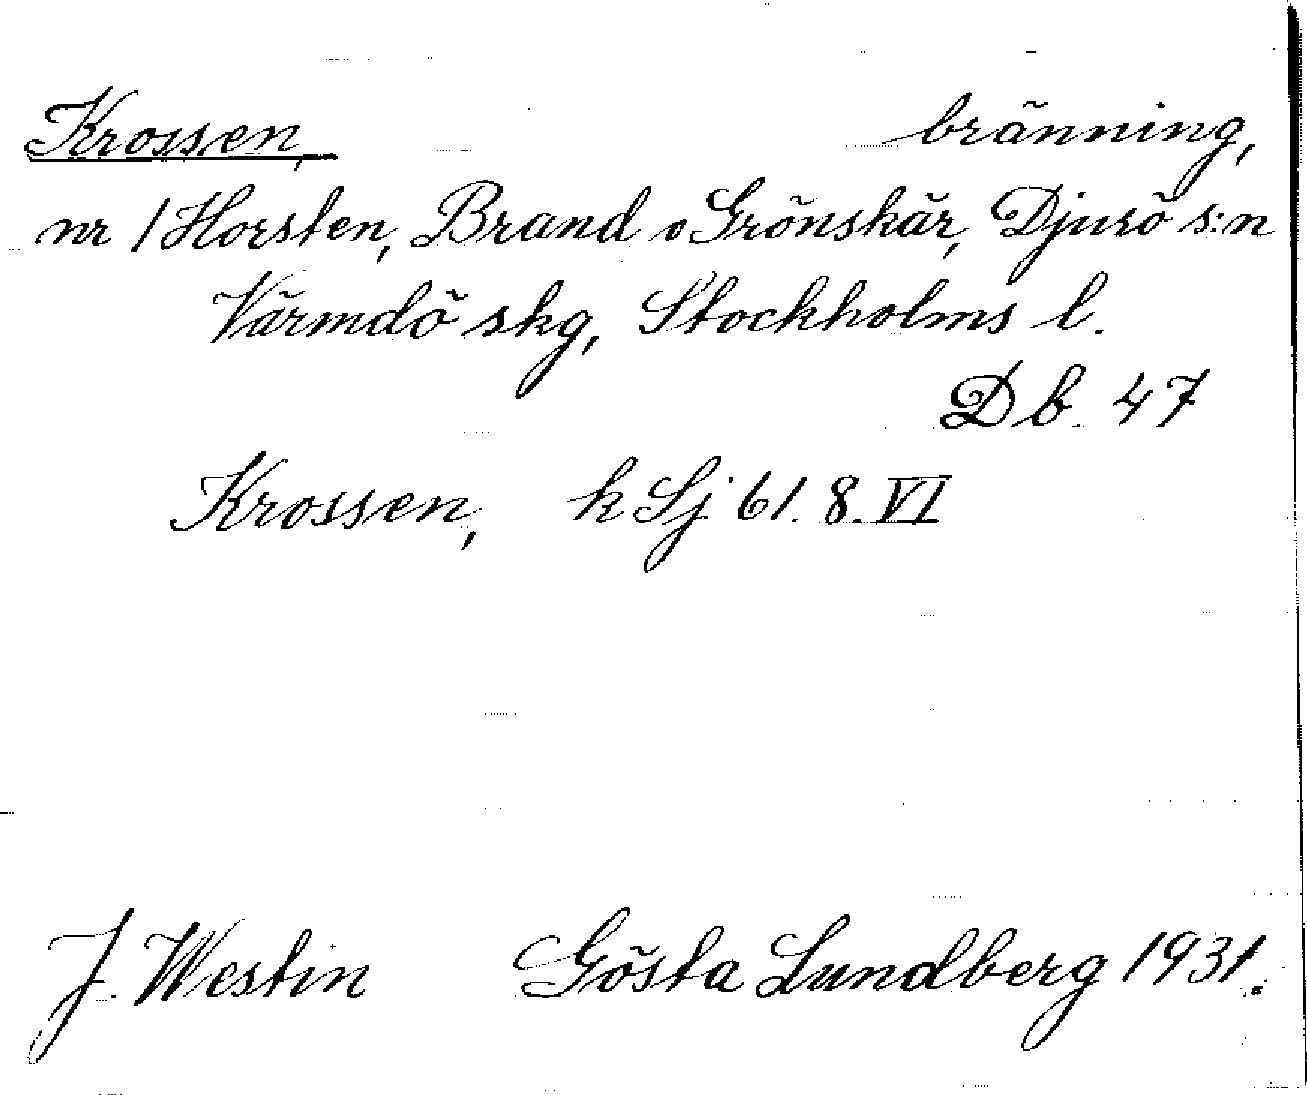 Krossen, bränning,
nr / Horsten, Brand o Grönskär, Djurö s:n
Värmdö skg, Stockholms l.
Db. 47
Krossen, k Sj 61. 8. VI
J. Westin Gösta Lundberg 1931.